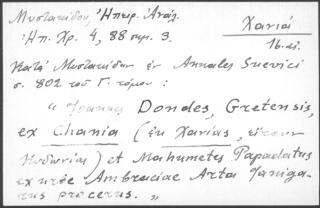 Μυστακίδου, Ἠπειρ. Ἀνάλ.
Ἠπ. Χρ. 4, 88 σημ. 3.
Χανιά
16. αἰ.
Κατὰ Μυστακίδην ἐν Annales Suevici
σ. 802 τοῦ Γ. τόμου :
"Joannes Dondes, Gretensis,
ex Chania (ἐκ Χανίας, εἴτουν
Κυδωνίας) et Mahumetes Papadatus
ex urbe Ambraciae Arta Janiga-
rus procerus. "